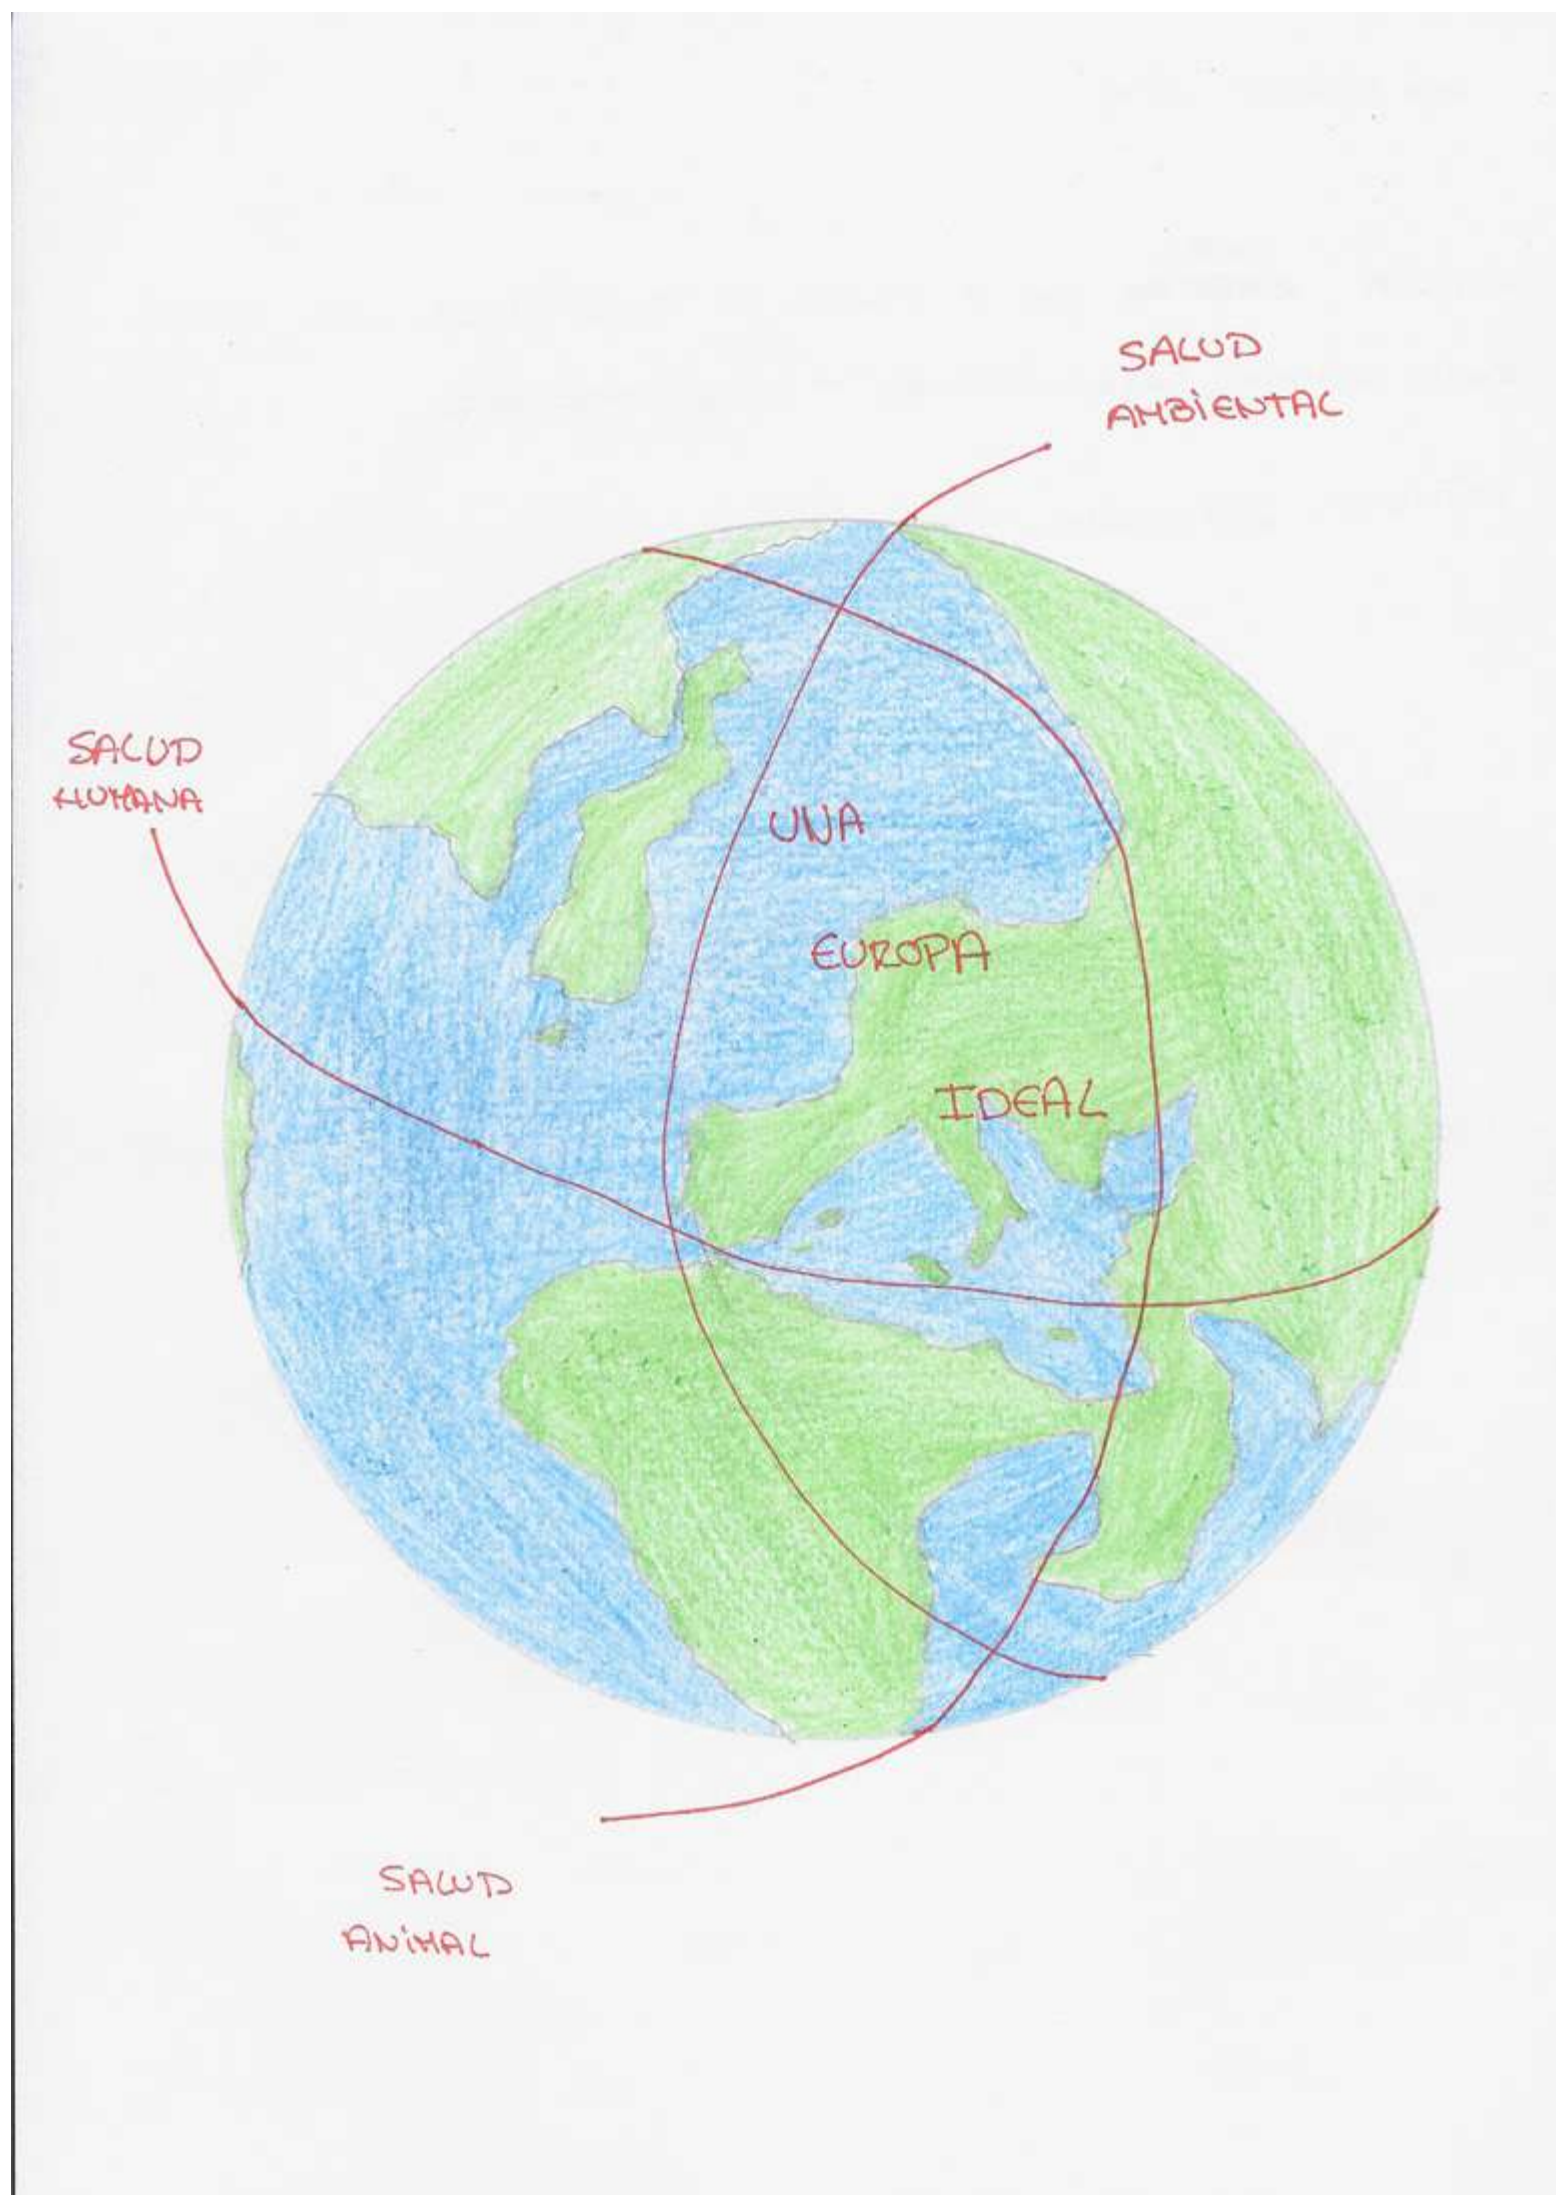 SALUD
AMBiENTAL
SALUD
HUMANA
UNA
EUROPA
IDEAL
SALUD
ANiMAL